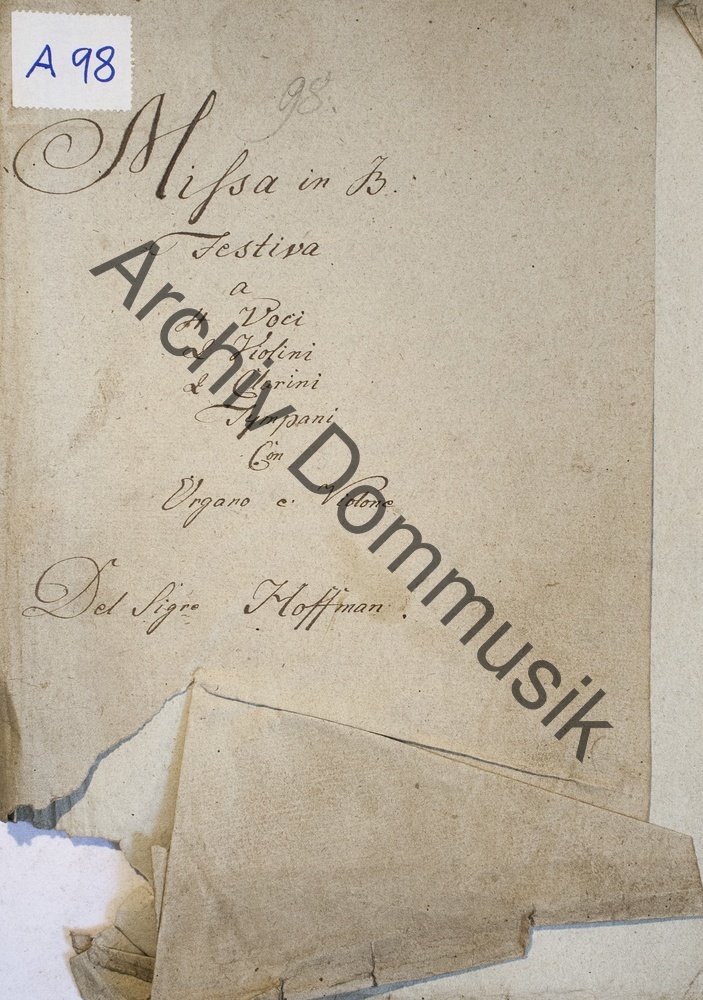 A 98
98.
Missa in B.
Festiva
a
4 Voci
2 Violini
2 Clarini
Tympani
Con
Organo e Violone
Del Sigre Hoffman.
Archiv Dommusik